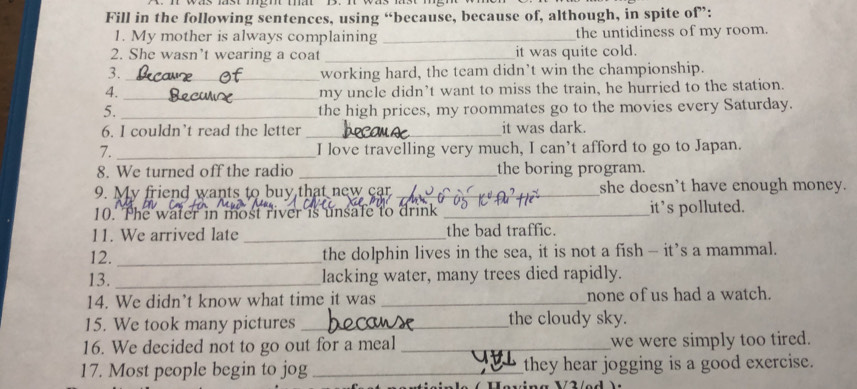 Fill in the following sentences, using “because, because of, although, in spite of”:
1. My mother is always complaining ____________ the untidiness of my room.
2. She wasn’t wearing a coat ____________ it was quite cold.
3. Because of ____________ working hard, the team didn’t win the championship.
4. ____ Because ____ my uncle didn’t want to miss the train, he hurried to the station.
5. ____________ the high prices, my roommates go to the movies every Saturday.
6. I couldn’t read the letter ____ because ____ it was dark.
7. ____________ I love travelling very much, I can’t afford to go to Japan.
8. We turned off the radio ____________ the boring program.
9. My friend wants to buy that new car ____________ she doesn’t have enough money.
10. The water in most river is unsafe to drink ____________ it’s polluted.
11. We arrived late ____________ the bad traffic.
12. ____________ the dolphin lives in the sea, it is not a fish – it’s a mammal.
13. ____________ lacking water, many trees died rapidly.
14. We didn’t know what time it was ____________ none of us had a watch.
15. We took many pictures ____ because ____ the cloudy sky.
16. We decided not to go out for a meal ____________ we were simply too tired.
17. Most people begin to jog ____________ they hear jogging is a good exercise.